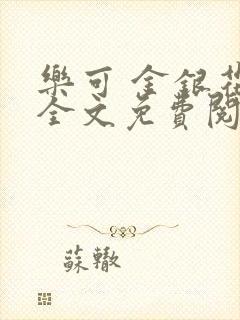 樂可 金銀花
全文免費閱
蘇轍